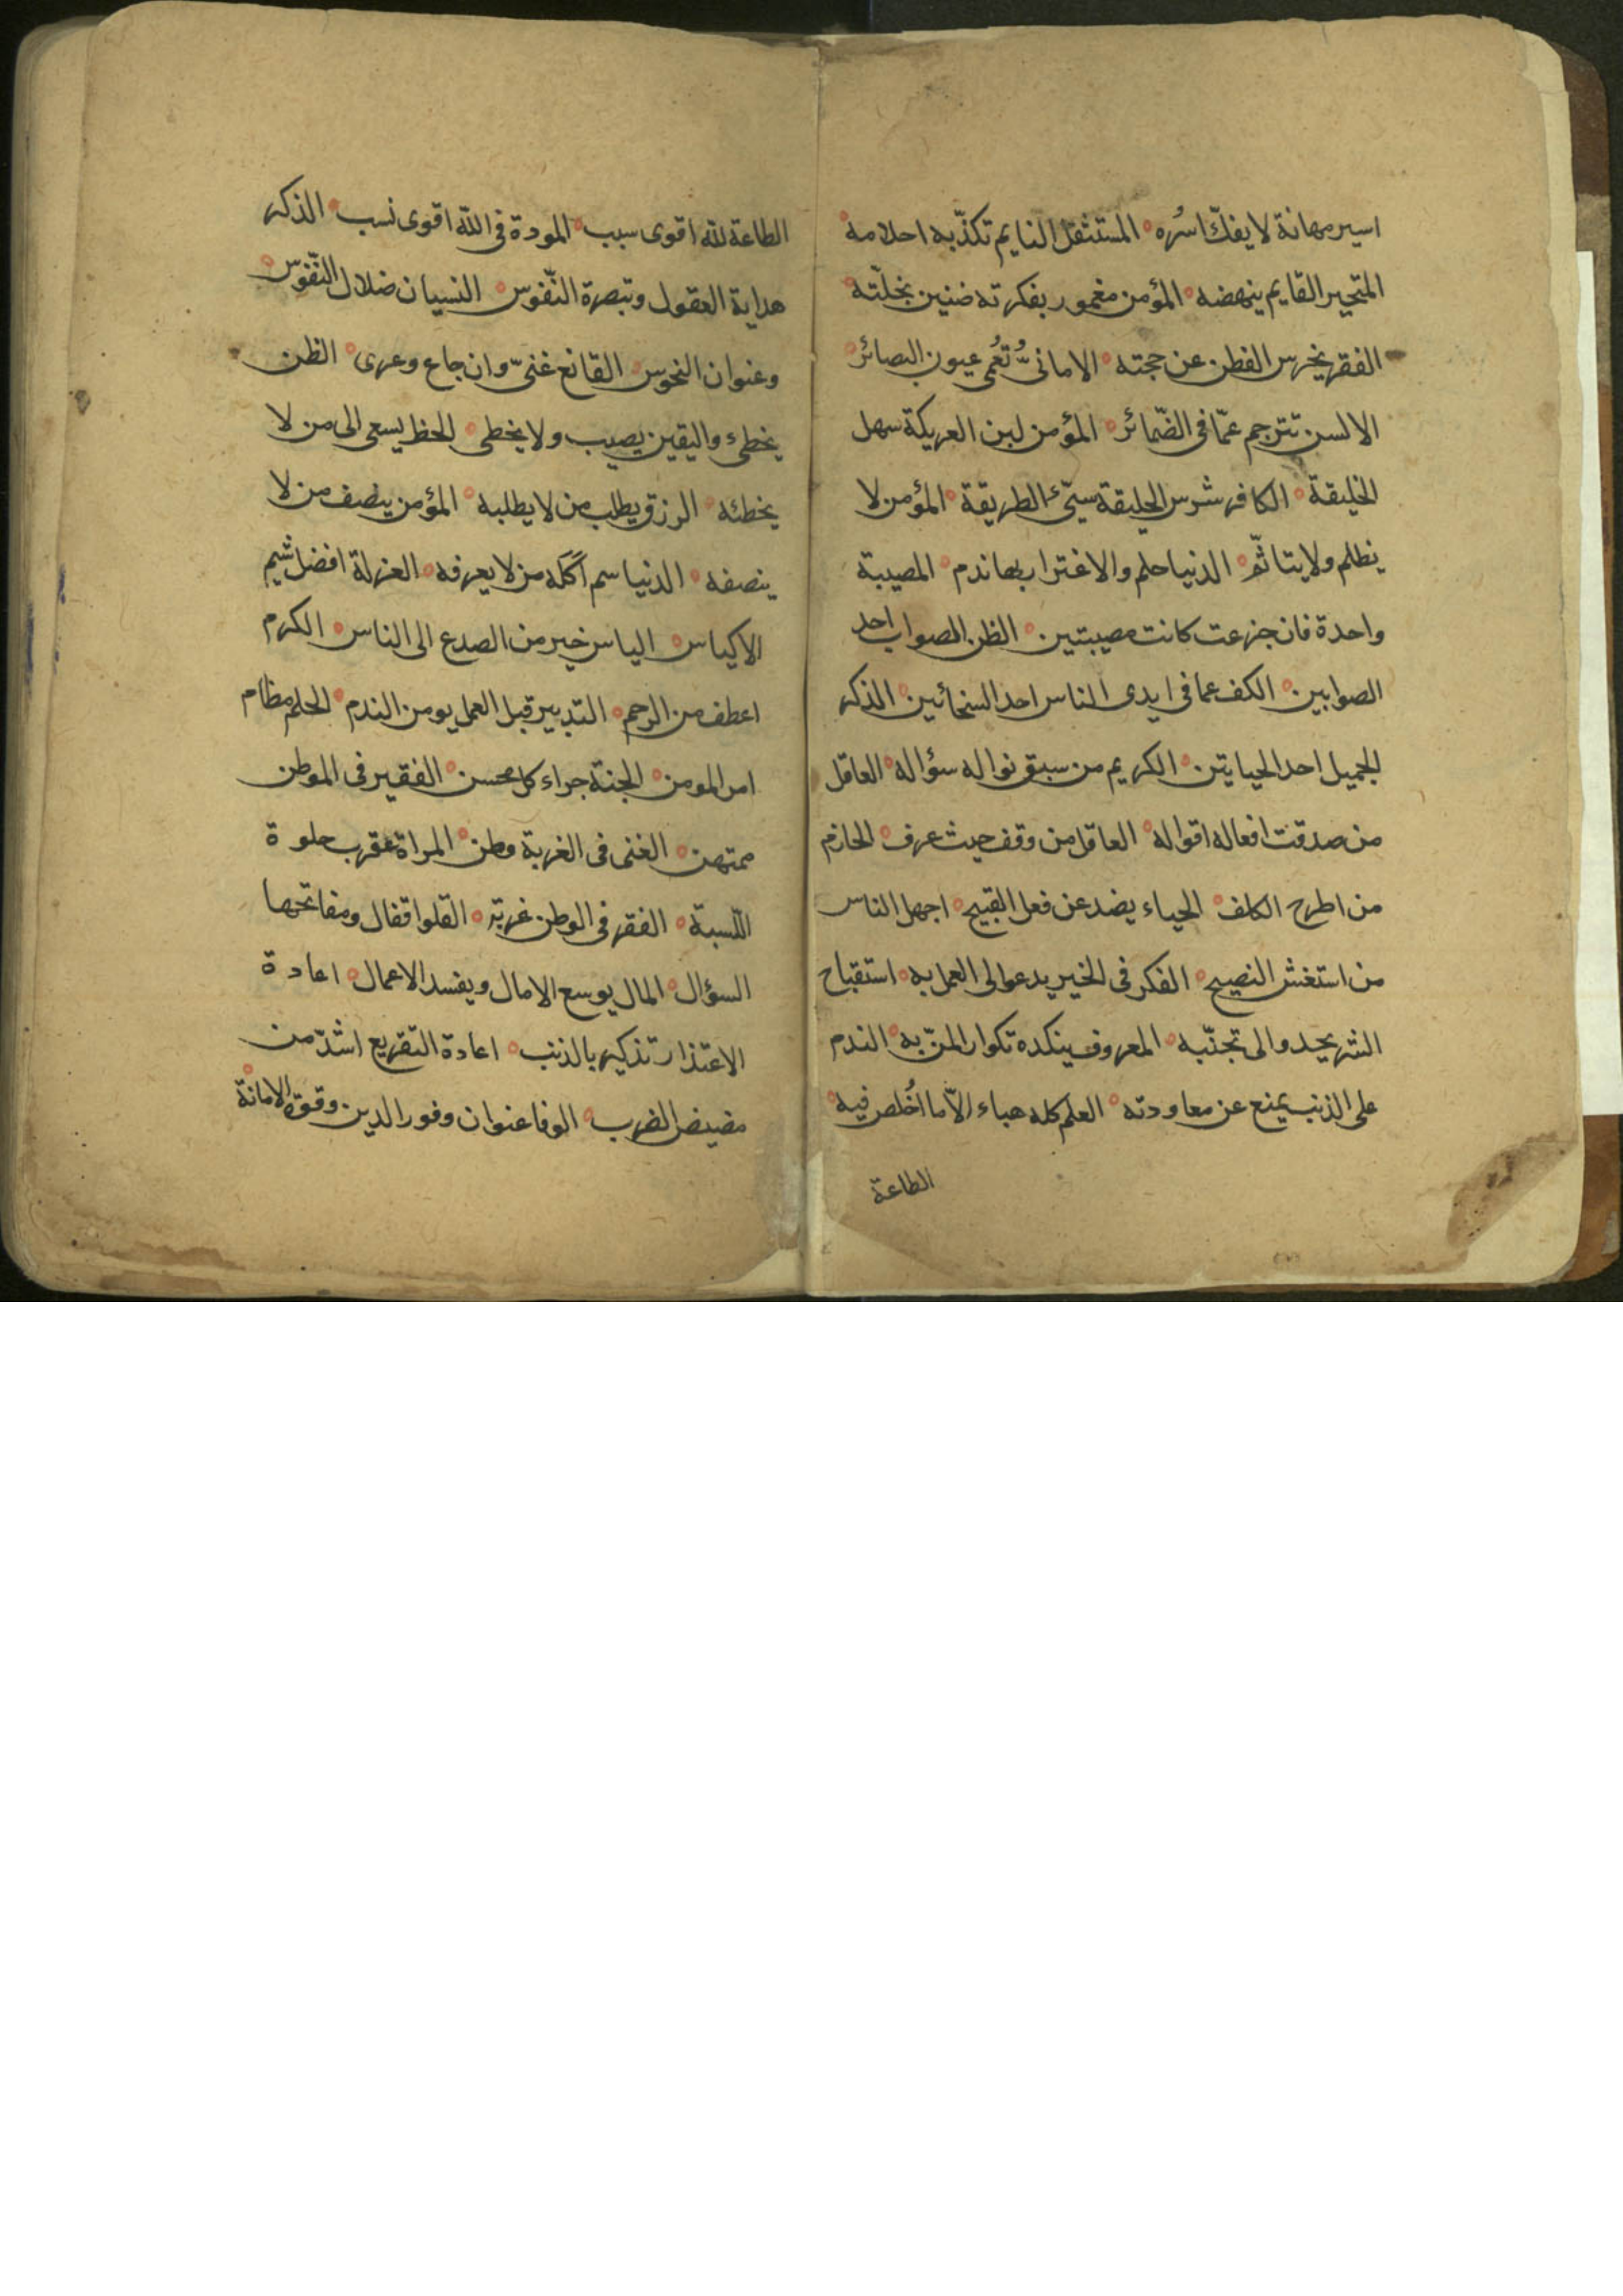 اسير مهانة لا يفكّ اسُره المستثقل النايم تكذّبه احلامه
المتحير القايم ينهضه المؤمن مغمور بفكرته ضنين بخلّته
الفقر يخرس الفطن عن حجته الامانىُّ تُعُمى عيون البصائر
الالسن تترجم عمّا فى الضّمائر المؤمن لين العريكة سهل
الخليقة الكافر شرس الخليقة سيّئ الطريقة المؤمن لا
يظلم ولا يتاثّم الدنيا حلم والاغترار بها ندم المصيبة
واحدة فان جزعت كانت مصيبتين الظن الصواب احد
الصوابين الكف عما فى ايدى الناس احد السخائين الذكر
الجميل احد الحياتين الكريم من سبق نواله سؤاله العاقل
من صدقت افعاله اقواله العاقل من وقف حيث عرف الحازم
من اطرح الكلف الحياء يصد عن فعل القبيح اجهل الناس
من استغش النصيح الفكر فى الخير يدعو الى العمل به استقباح
الشر يحدو الى تجنّبه المعروف ينكده تكرار المنّ به الندم
على الذنب يمنع عن معاودته العلم كله هباء الاّ ما اُخلص فيه
الطاعة
الطاعة لله اقوى سبب المودة فى الله اقوى نسب الذكر
هداية العقول وتبصرة النّفوس النسيان ضلال النّفوس
وعنوان النحوس القانع غنىّ وان جاع وعرى الظن
يخطئ واليقين يصيب ولا يخطى الحظ يسعى الى من لا
يخطئه الرزق يطلب من لا يطلبه المؤمن ينصف من لا
ينصفه الدنيا سم آكله من لا يعرفه العزلة افضل شيم
الاكياس الياس خير من الصدع الى الناس الكرم
اعطف من الرحم التدبير قبل العمل يومن الندم الحلم مظام
امر المومن الجنة جزاء كل محسن الفقير فى الموطن
ممتهن الغنى فى الغربة وطن المراة عقرب حلوة
اللّسبة الفقر فى الوطن غربة القلوا قفال ومفاتحها
السؤال المال يوسع الامال ويفسد الاعمال اعادة
الاعتذار تذكير بالذنب اعادة التقريع اشدّ من
مضيض الضرب الوفا عنوان وفور الدين وقوة الامانة